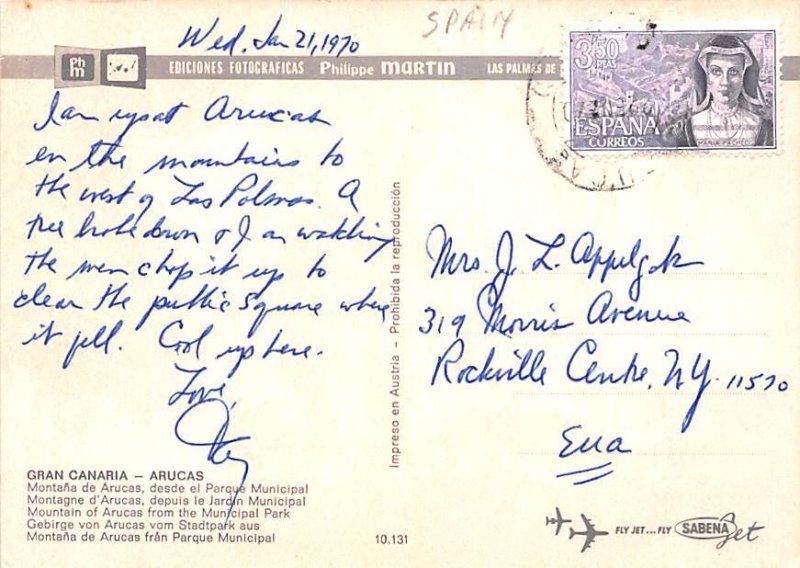 SPAIN
Wed. Jan 21, 1970
phm
EDICIONES FOTOGRAFICAS Philippe MARTIN LAS PALMAS DE
3,50 PTAS
ESPAÑA
CORREOS
MARIA PACHECO
I am up at Arucas
in the mountains to
the west of Las Palmas. A
tree broke down & I am watching
the men chop it up to
clear the public square where
it fell. Cool up here.
Love,
Mrs. J. L.
319 Morris Avenue
Rockville Centre, NY. 11570
Eua
Impreso en Austria - Prohibida la reproducción
GRAN CANARIA – ARUCAS
Montaña de Arucas, desde el Parque Municipal
Montagne d'Arucas, depuis le Jardin Municipal
Mountain of Arucas from the Municipal Park
Gebirge von Arucas vom Stadtpark aus
Montaña de Arucas från Parque Municipal
10.131
FLY JET...FLY SABENA jet